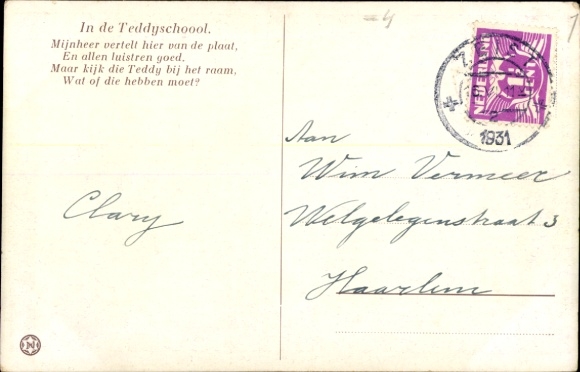 In de Teddyschoool.
Mijnheer vertelt hier van de plaat,
En allen luistren goed,
Maar kijk die Teddy bij het raam,
Wat of die hebben moet?
=4
NEDERLAND
1931
Aan
Wim Vermeer
Welgelegenstraat 3
Haarlem
Clary